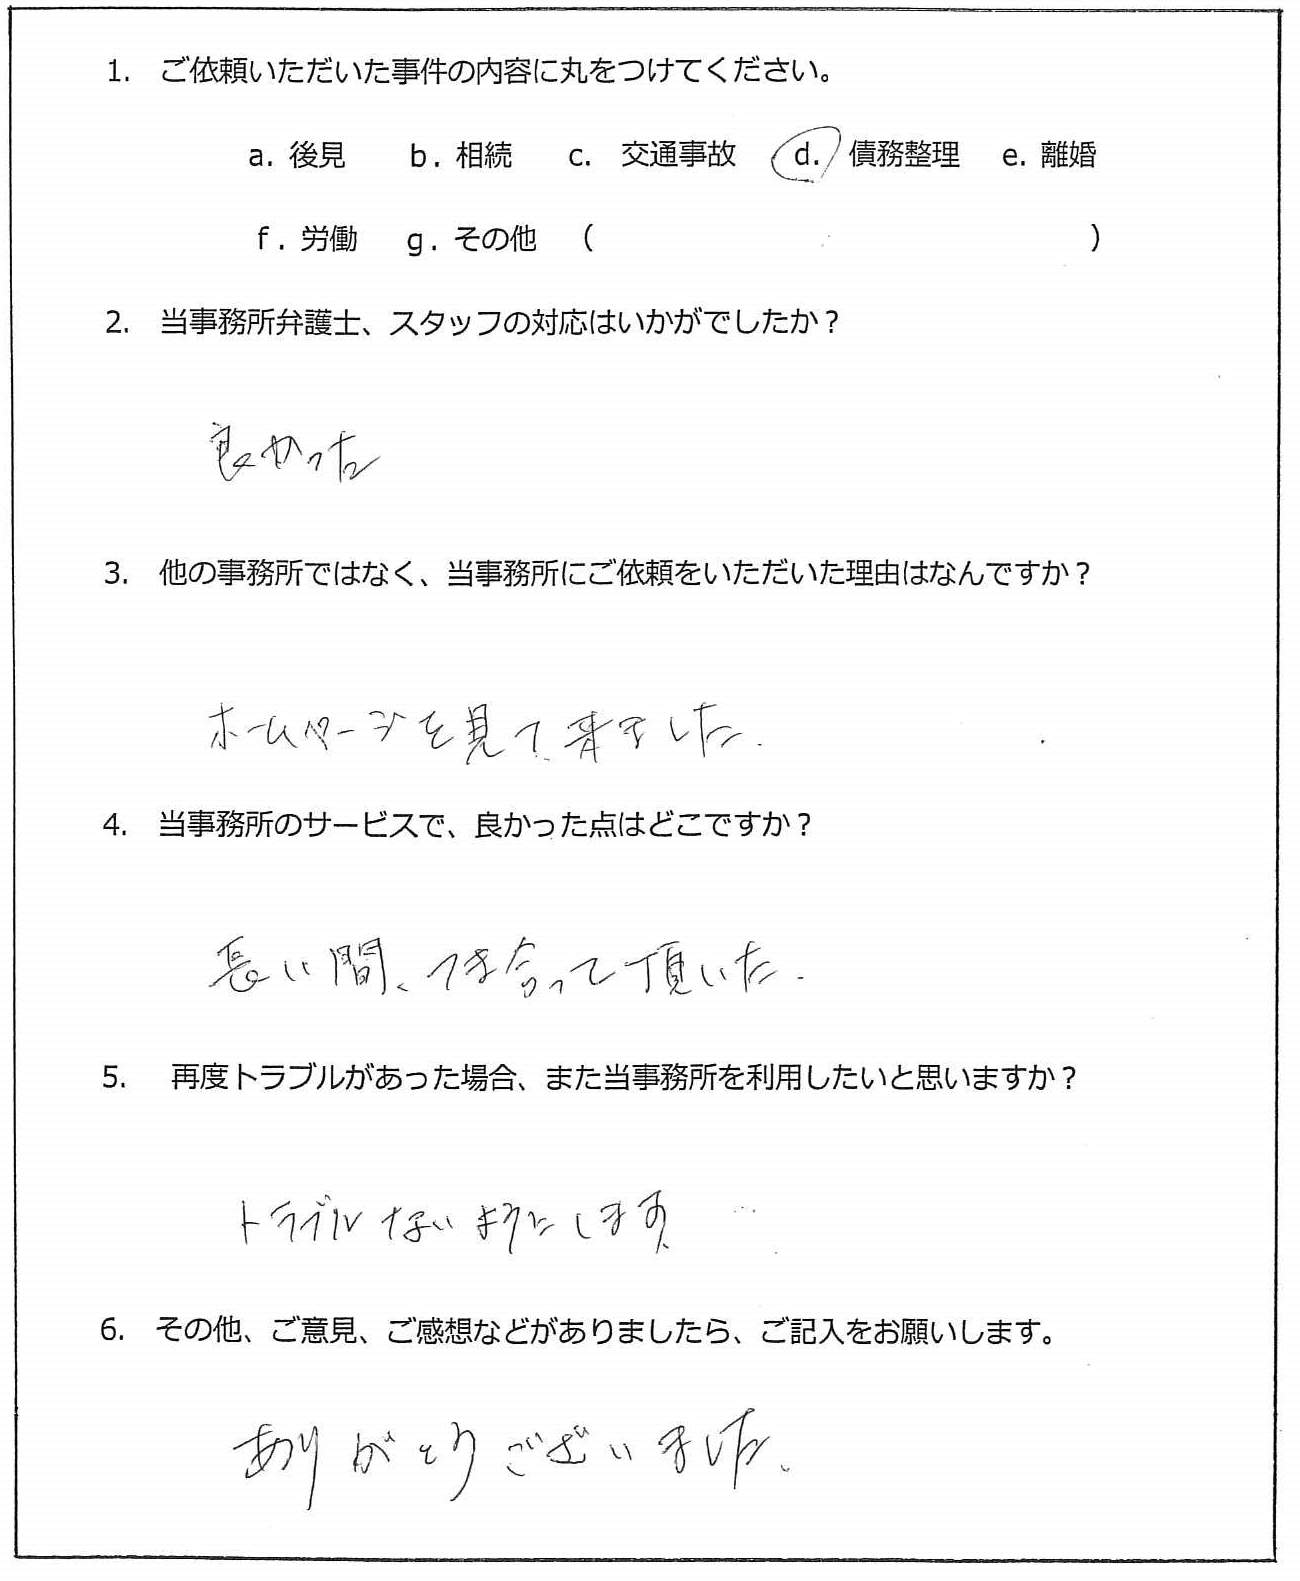 1. ご依頼いただいた事件の内容に丸をつけてください。
a. 後見 b. 相続 c. 交通事故 d. 債務整理 e. 離婚
f. 労働 g. その他 ( )
2. 当事務所弁護士、スタッフの対応はいかがでしたか？
良かった
3. 他の事務所ではなく、当事務所にご依頼をいただいた理由はなんですか？
ホームページを見て来ました.
4. 当事務所のサービスで、良かった点はどこですか？
長い間、つき合って頂いた.
5. 再度トラブルがあった場合、また当事務所を利用したいと思いますか？
トラブルないようにします
6. その他、ご意見、ご感想などがありましたら、ご記入をお願いします。
ありがとうございました、